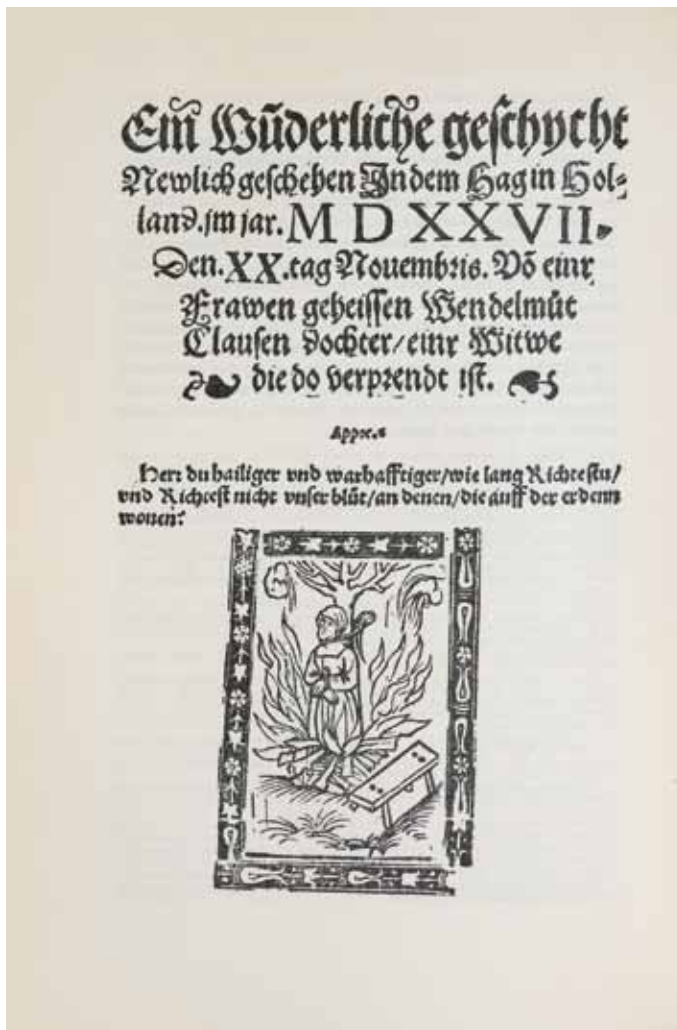 Eim̃ Wũderliche geschycht
Newlich geschehen In dem Hag in Hol⸗
land. jm jar. M D XXVII.
Den. XX. tag Nouembris. Võ einr
Frawen geheissen Wendelmůt
Clausen dochter/ einr Witwe
die do verprendt ist.
Appoc.
Herr du hailiger vnd warhafftiger/ wie lang Richtestu/
vnd Richest nicht vnser blůt/ an denen/ die auff der erdenn
wonen?